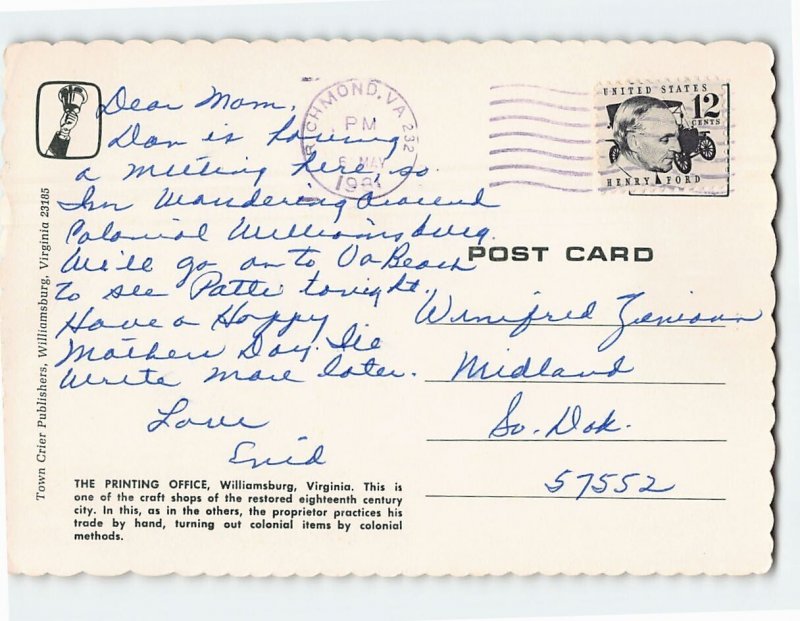 Dear Mom,
Dan is having
a meeting here, so
I'm wandering around
Colonial Williamsburg.
We'll go on to Va Beach
to see Patti tonight.
Have a Happy
Mothers Day. I'le
write more later.
Love
Enid
THE PRINTING OFFICE, Williamsburg, Virginia. This is
one of the craft shops of the restored eighteenth century
city. In this, as in the others, the proprietor practices his
trade by hand, turning out colonial items by colonial
methods.
Town Crier Publishers, Williamsburg, Virginia 23185
RICHMOND, VA 232
PM
6 MAY
UNITED STATES
12
CENTS
HENRY FORD
POST CARD
Winifred
Midland
So. Dak.
57552